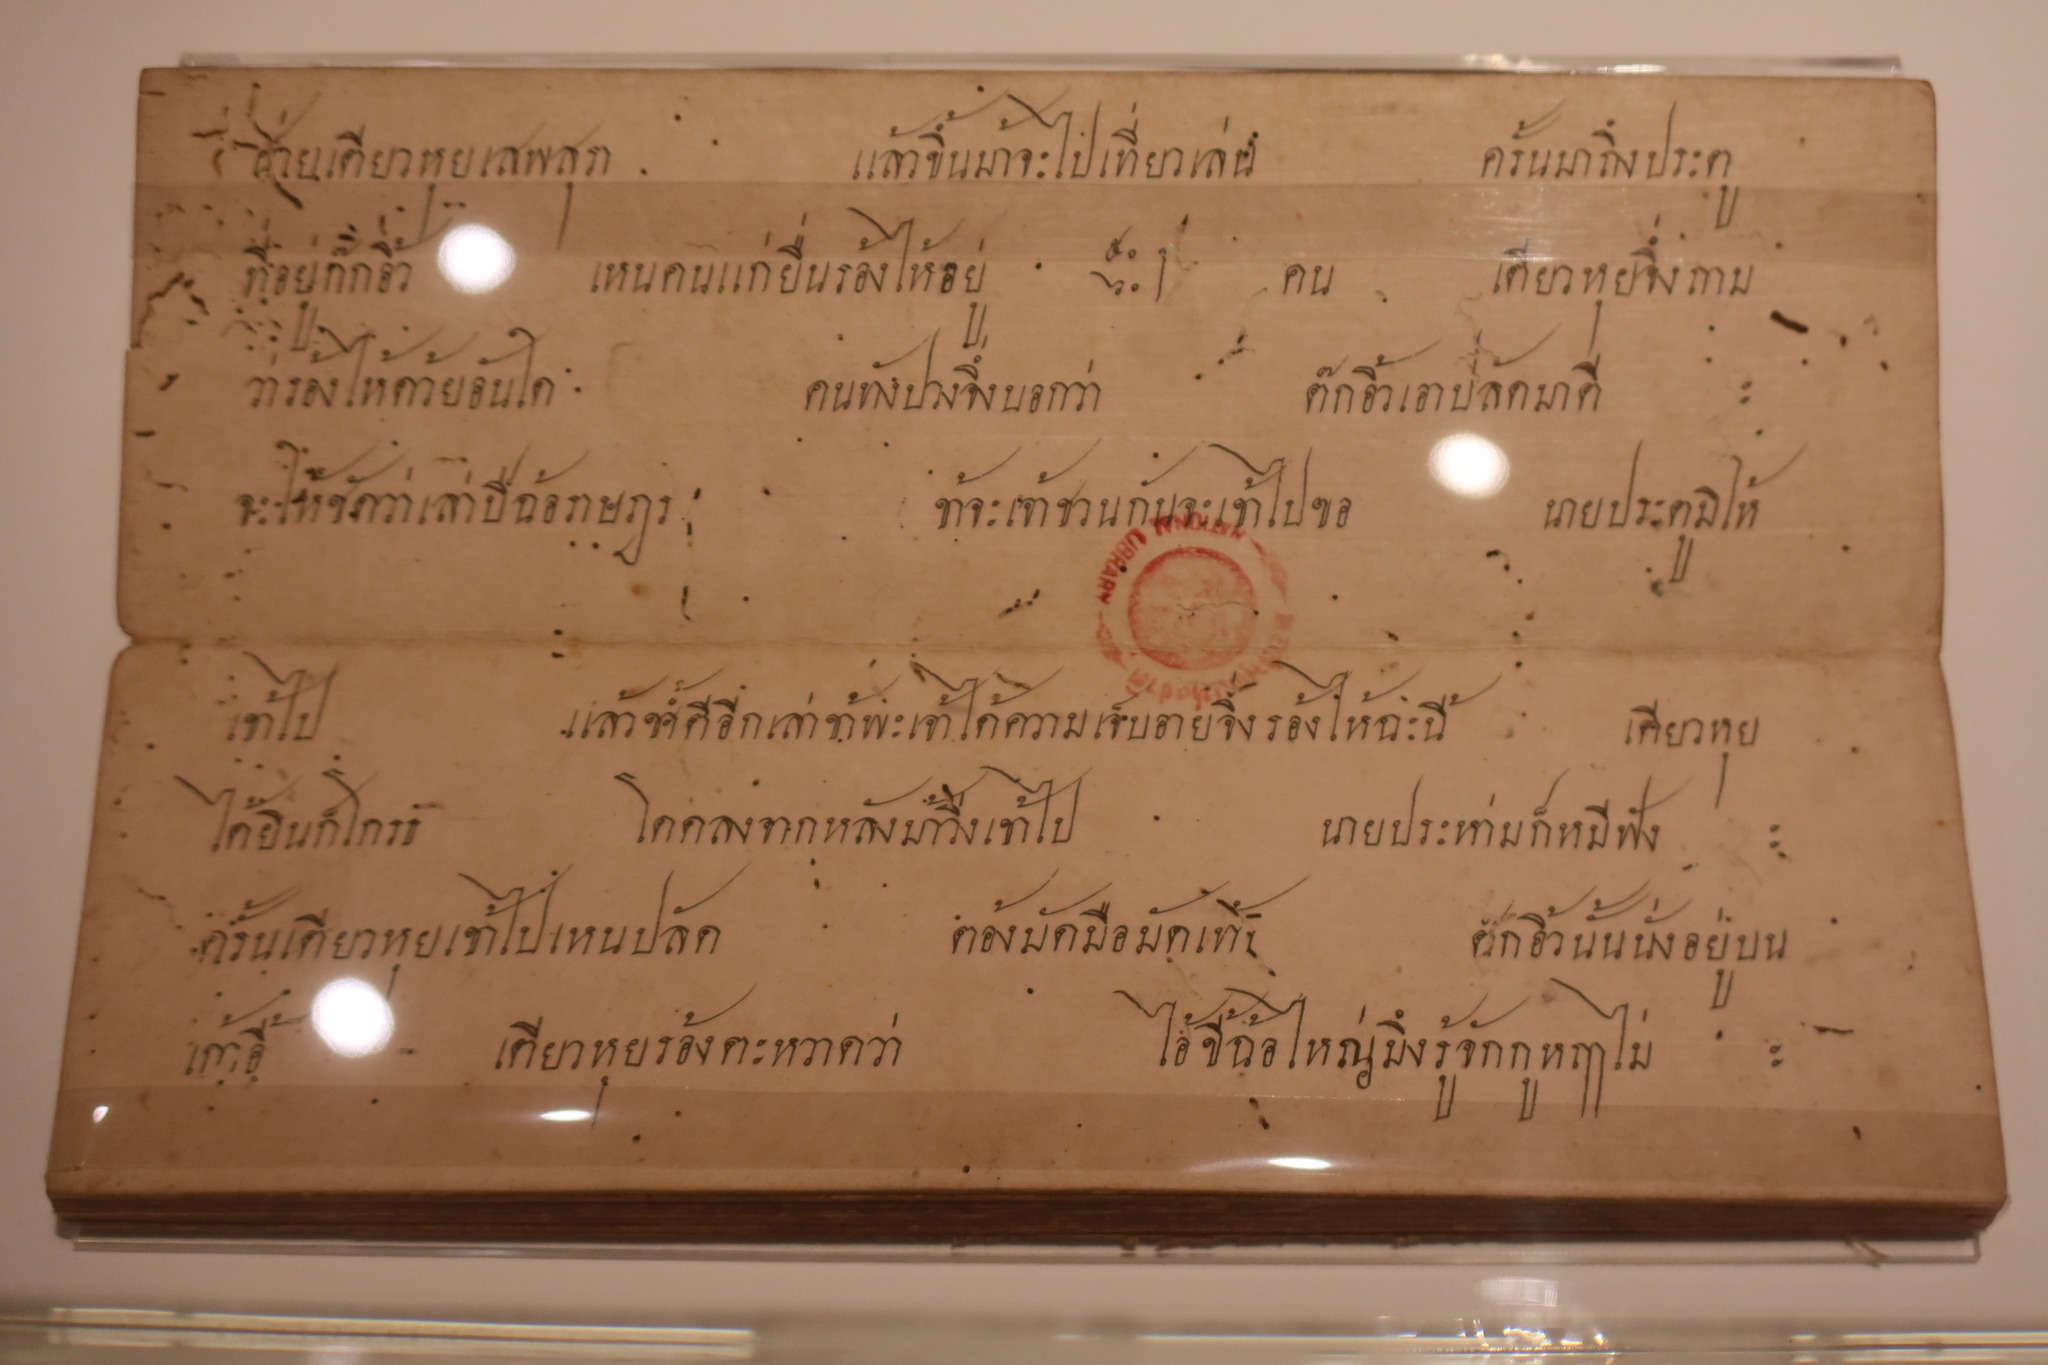 ฝ่ายเตียวหุยเสพสุรา แล้วขึ้นม้าจะไปเที่ยวเล่น ครั้นมาถึงประตู
ที่อยู่ต๊กอิ้ว เหนคนแก่ยืนร้องไห้อยู่ คน เตียวหุยจึ่งถาม
ว่าร้องไห้ด้วยอันใด คนทังปวงจึ่งบอกว่า ต๊กอิ้วเอาปลัดมาตี
จะให้ซัดว่าเล่าปี่ฉ้อราษฎร ข้าจะเจ้าชวนกันจะเข้าไปขอ นายประตูมิให้
เข้าไป แล้วซ้ำตีอีกเล่าข้าพะเจ้าได้ความเจ็บอายจึ่งร้องไห้ฉะนี้ เตียวหุย
ได้ยินก็โกรธ โดดลงจากหลังม้าวิ่งเข้าไป นายประหามก็หมีฟัง
ครั้นเตียวหุยเข้าไปเหนปลัด ต้องมัดมือมัดเท้า ต๊กอิ้วนั้นนั่งอยู่บน
เก้าอี้ เตียวหุยร้องตะหวาดว่า ไอ้ขี้ฉ้อใหญ่มึงรู้จักกูหฤๅไม่
NATIONAL LIBRARY